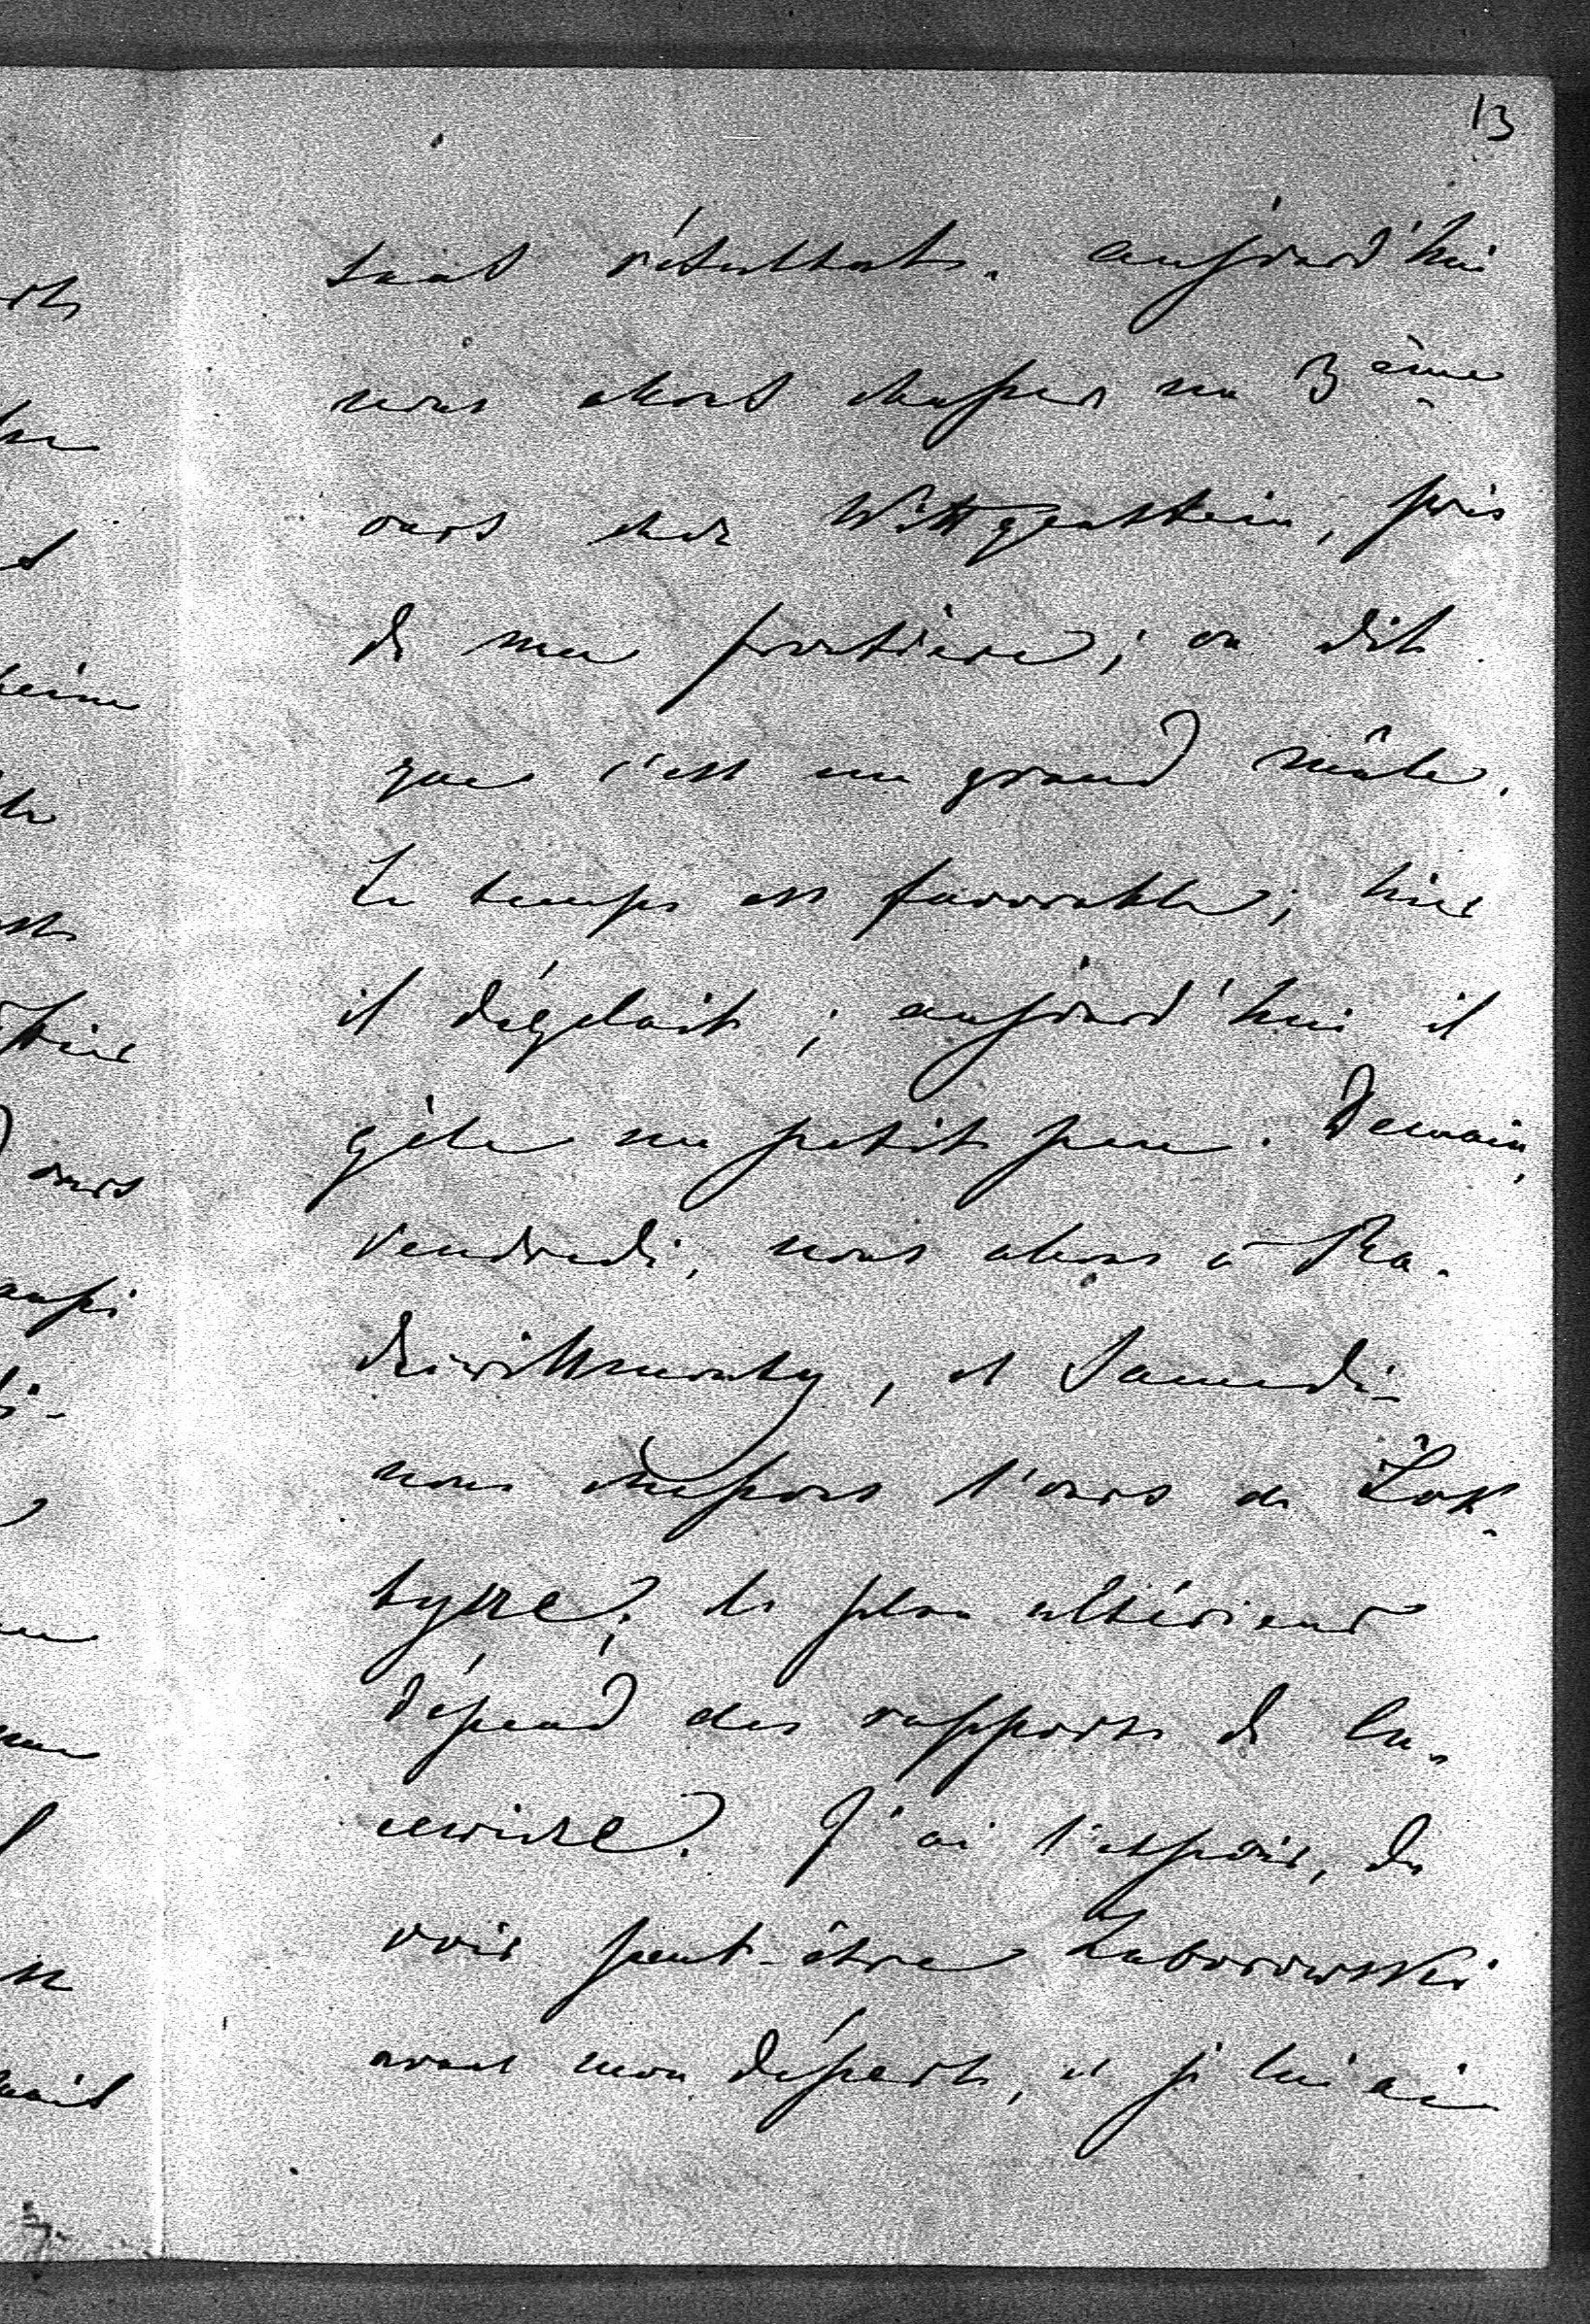 13
sans résultats. aujourd'hui
nous allons chasser un 3ème
ours chez Wittgenstein, près
de ma frontière; on dit
que c'est un grand mâle.
Le temps est favorable; hier
il dégelait; aujourd'hui il
gèle un petit peu. Demain,
Vendredi, nous allons à Ra-
dziwillmonty, et Samedi
nous chassons l'ours de Lok-
tysze. Le plan ultérieur
dépend des rapports de
J'ai l'espoir, de
voir peut-être Zaborowski
avant mon départ, et je lui ai
ours